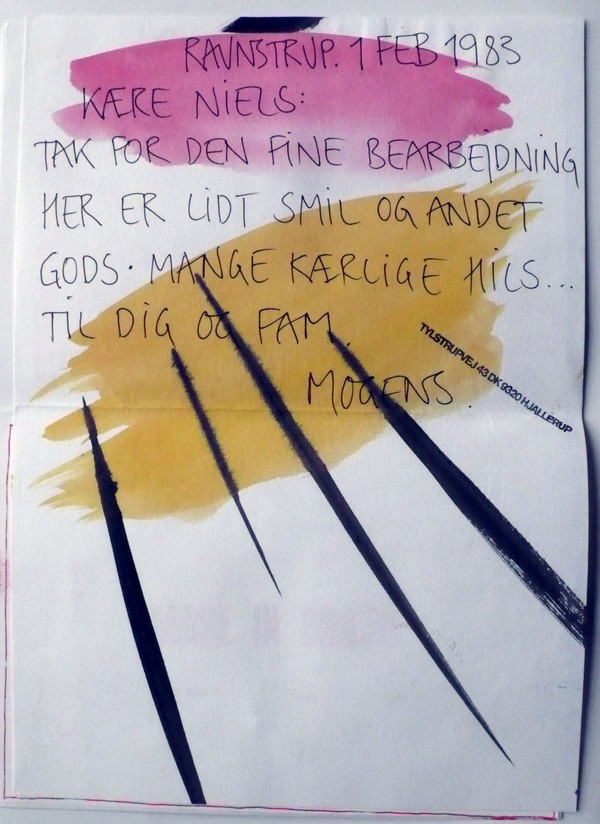 RAVNSTRUP. 1 FEB 1983
KÆRE NIELS:
TAK FOR DEN FINE BEARBEJDNING
HER ER LIDT SMIL OG ANDET
GODS. MANGE KÆRLIGE HILS...
TIL DIG OG FAM.
MOGENS.
TYLSTRUPVEJ 43 DK 9320 HJALLERUP